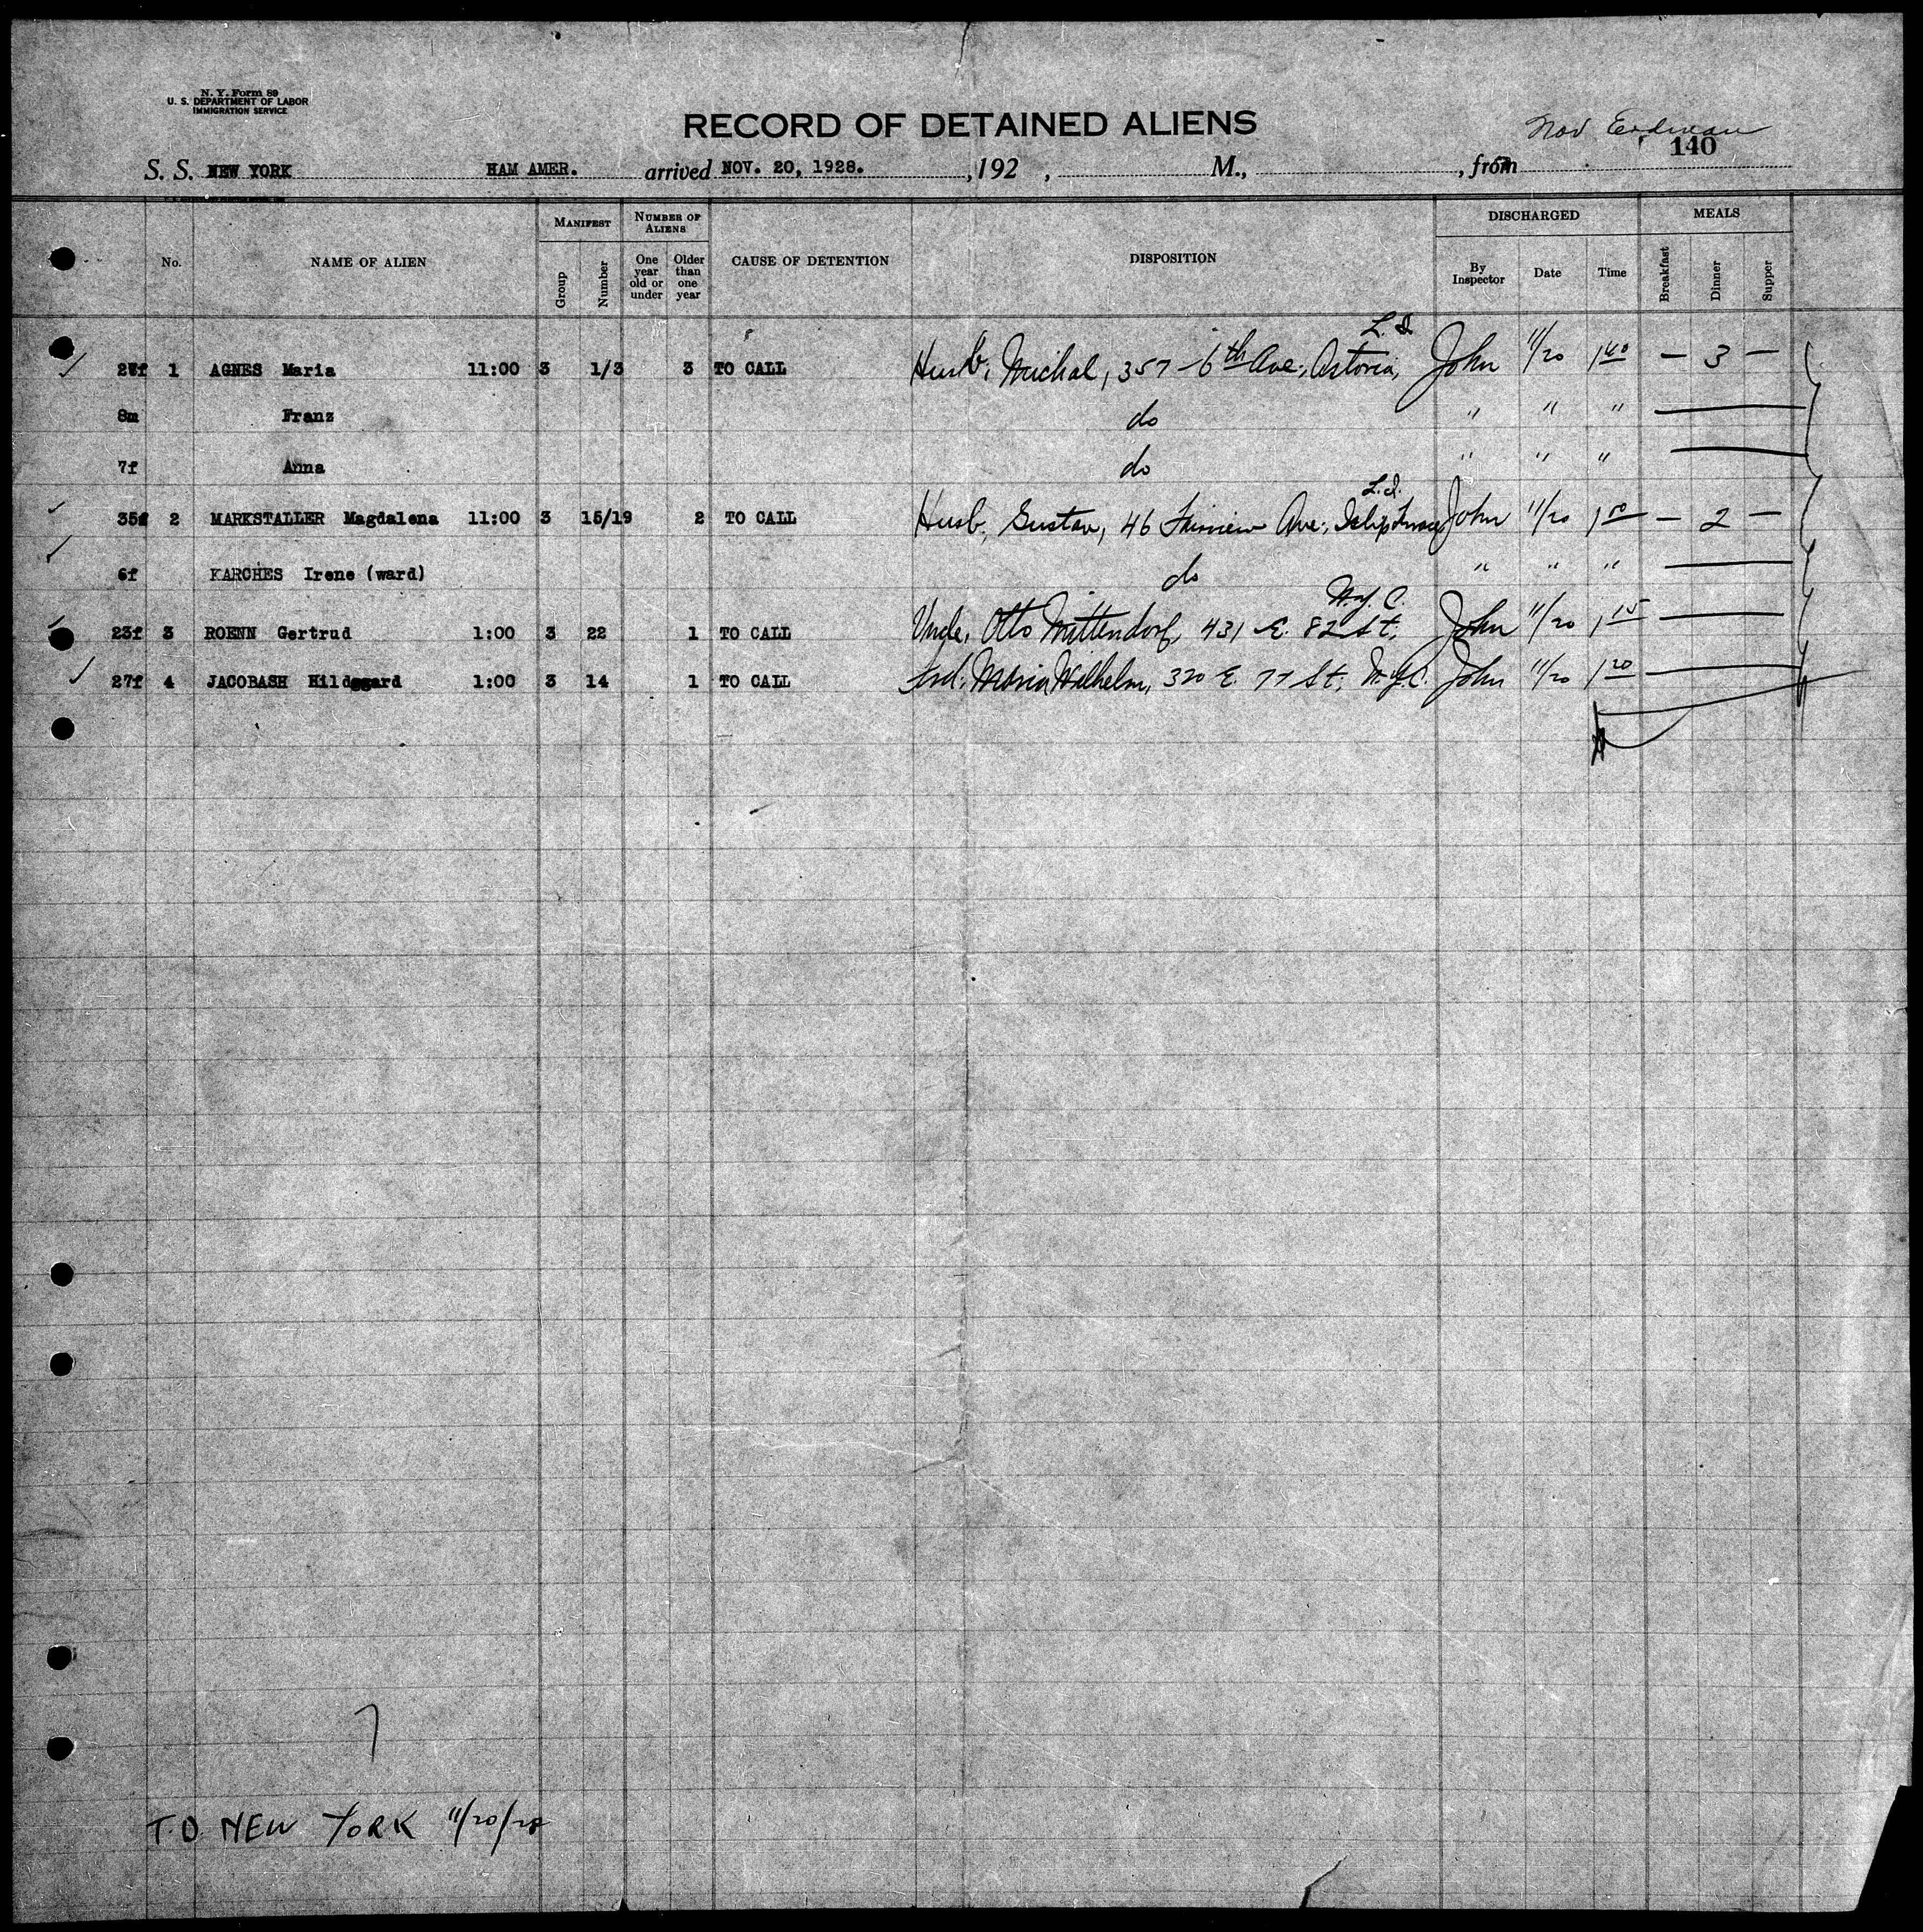 N. Y. Form 89
U. S. DEPARTMENT OF LABOR
IMMIGRATION SERVICE
RECORD OF DETAINED ALIENS
140
S. S. NEW YORK HAM AMER. arrived NOV. 20, 1928. , 192 , M., , from
No. NAME OF ALIEN MANIFEST Group Number NUMBER OF ALIENS One year old or under Older than one year CAUSE OF DETENTION DISPOSITION DISCHARGED By Inspector Date Time MEALS Breakfast Dinner Supper
L. I.
1 AGNES Maria 11:00 3 1/3 3 TO CALL Husb, Michal, 357 - 6th Ave., Astoria, John 11/20 1 40 — 3 —
8m Franz do " " "
7f Anna do " " "
L. I.
35f 2 MARKSTALLER Magdalena 11:00 3 15/19 2 TO CALL Husb, Gustav, 46 Fairview Ave., Islip John 11/20 1 50 — 2 —
6f KARCHES Irene (ward) do " " "
N.Y.C.
23f 3 ROENN Gertrud 1:00 3 22 1 TO CALL Uncle, Otto Mittendorf, 431 E. 82 St, John 11/20 1 15
27f 4 JACOBASH Hildegard 1:00 3 14 1 TO CALL Frd, Maria Wilhelm, 320 E. 77 St, N.Y.C. John 11/20 1 20
7
T.D. NEW YORK 11/20/28